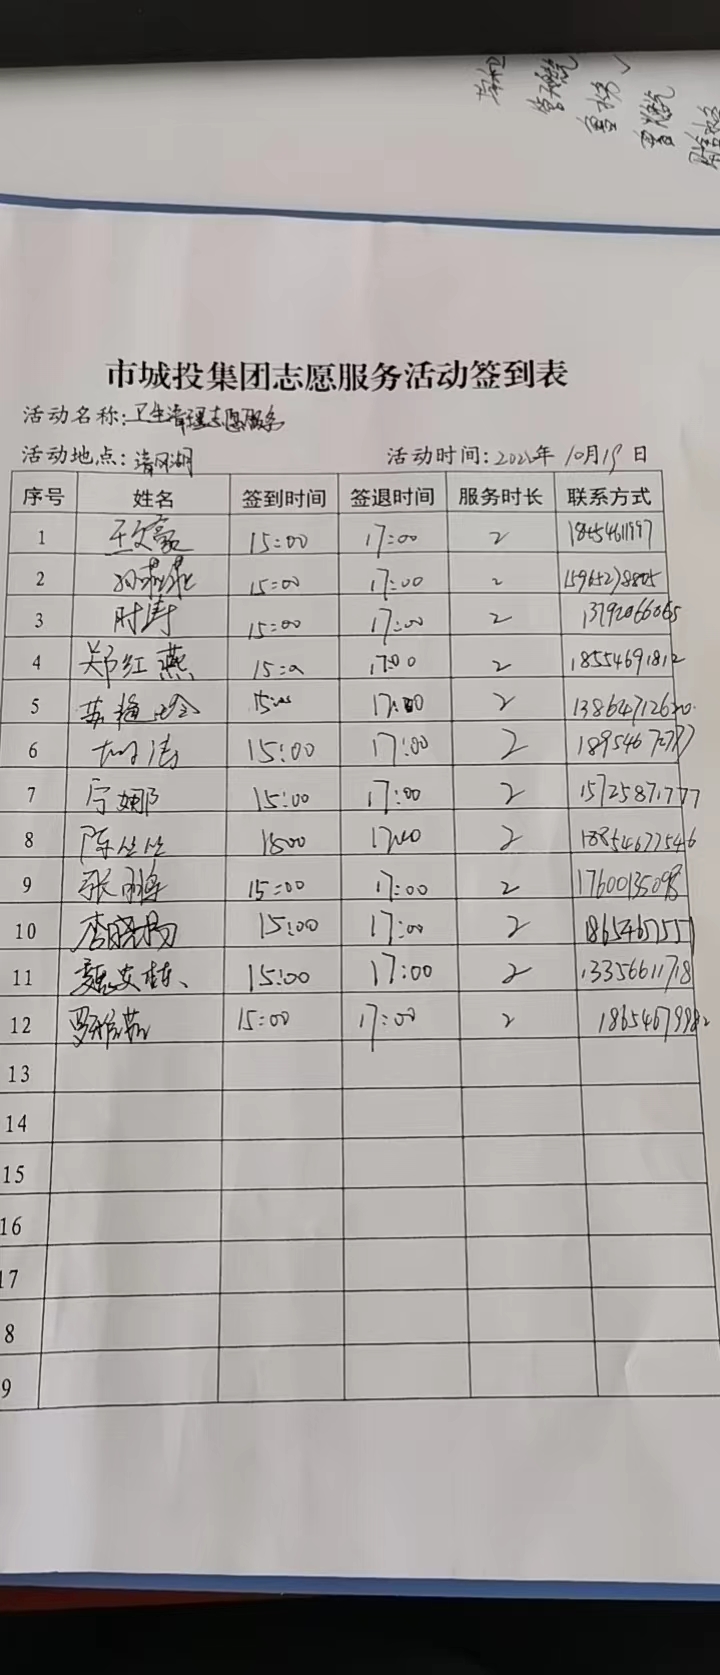 市城投集团志愿服务活动签到表
活动名称:卫生清理志愿服务
活动地点:清风湖 活动时间:2021年 10月19日
序号 姓名 签到时间 签退时间 服务时长 联系方式
1 王文豪 15:00 17:00 2
2 15:00 17:00 2
3 时涛 15:00 17:00 2
4 郑红燕 15:00 17:00 2 18554691812
5 17:00 2
6 15:00 17:00 2
7 宁娜 15:00 17:00 2 15725871777
8 陈丝丝 1500 17:00 2 18854677546
9 15:00 17:00 2 17600135098
10 李晓杨 15:00 17:00 2
11 15:00 17:00 2 13356611718
12 15:00 17:00 2 18654679982
13
14
15
16
17
8
9